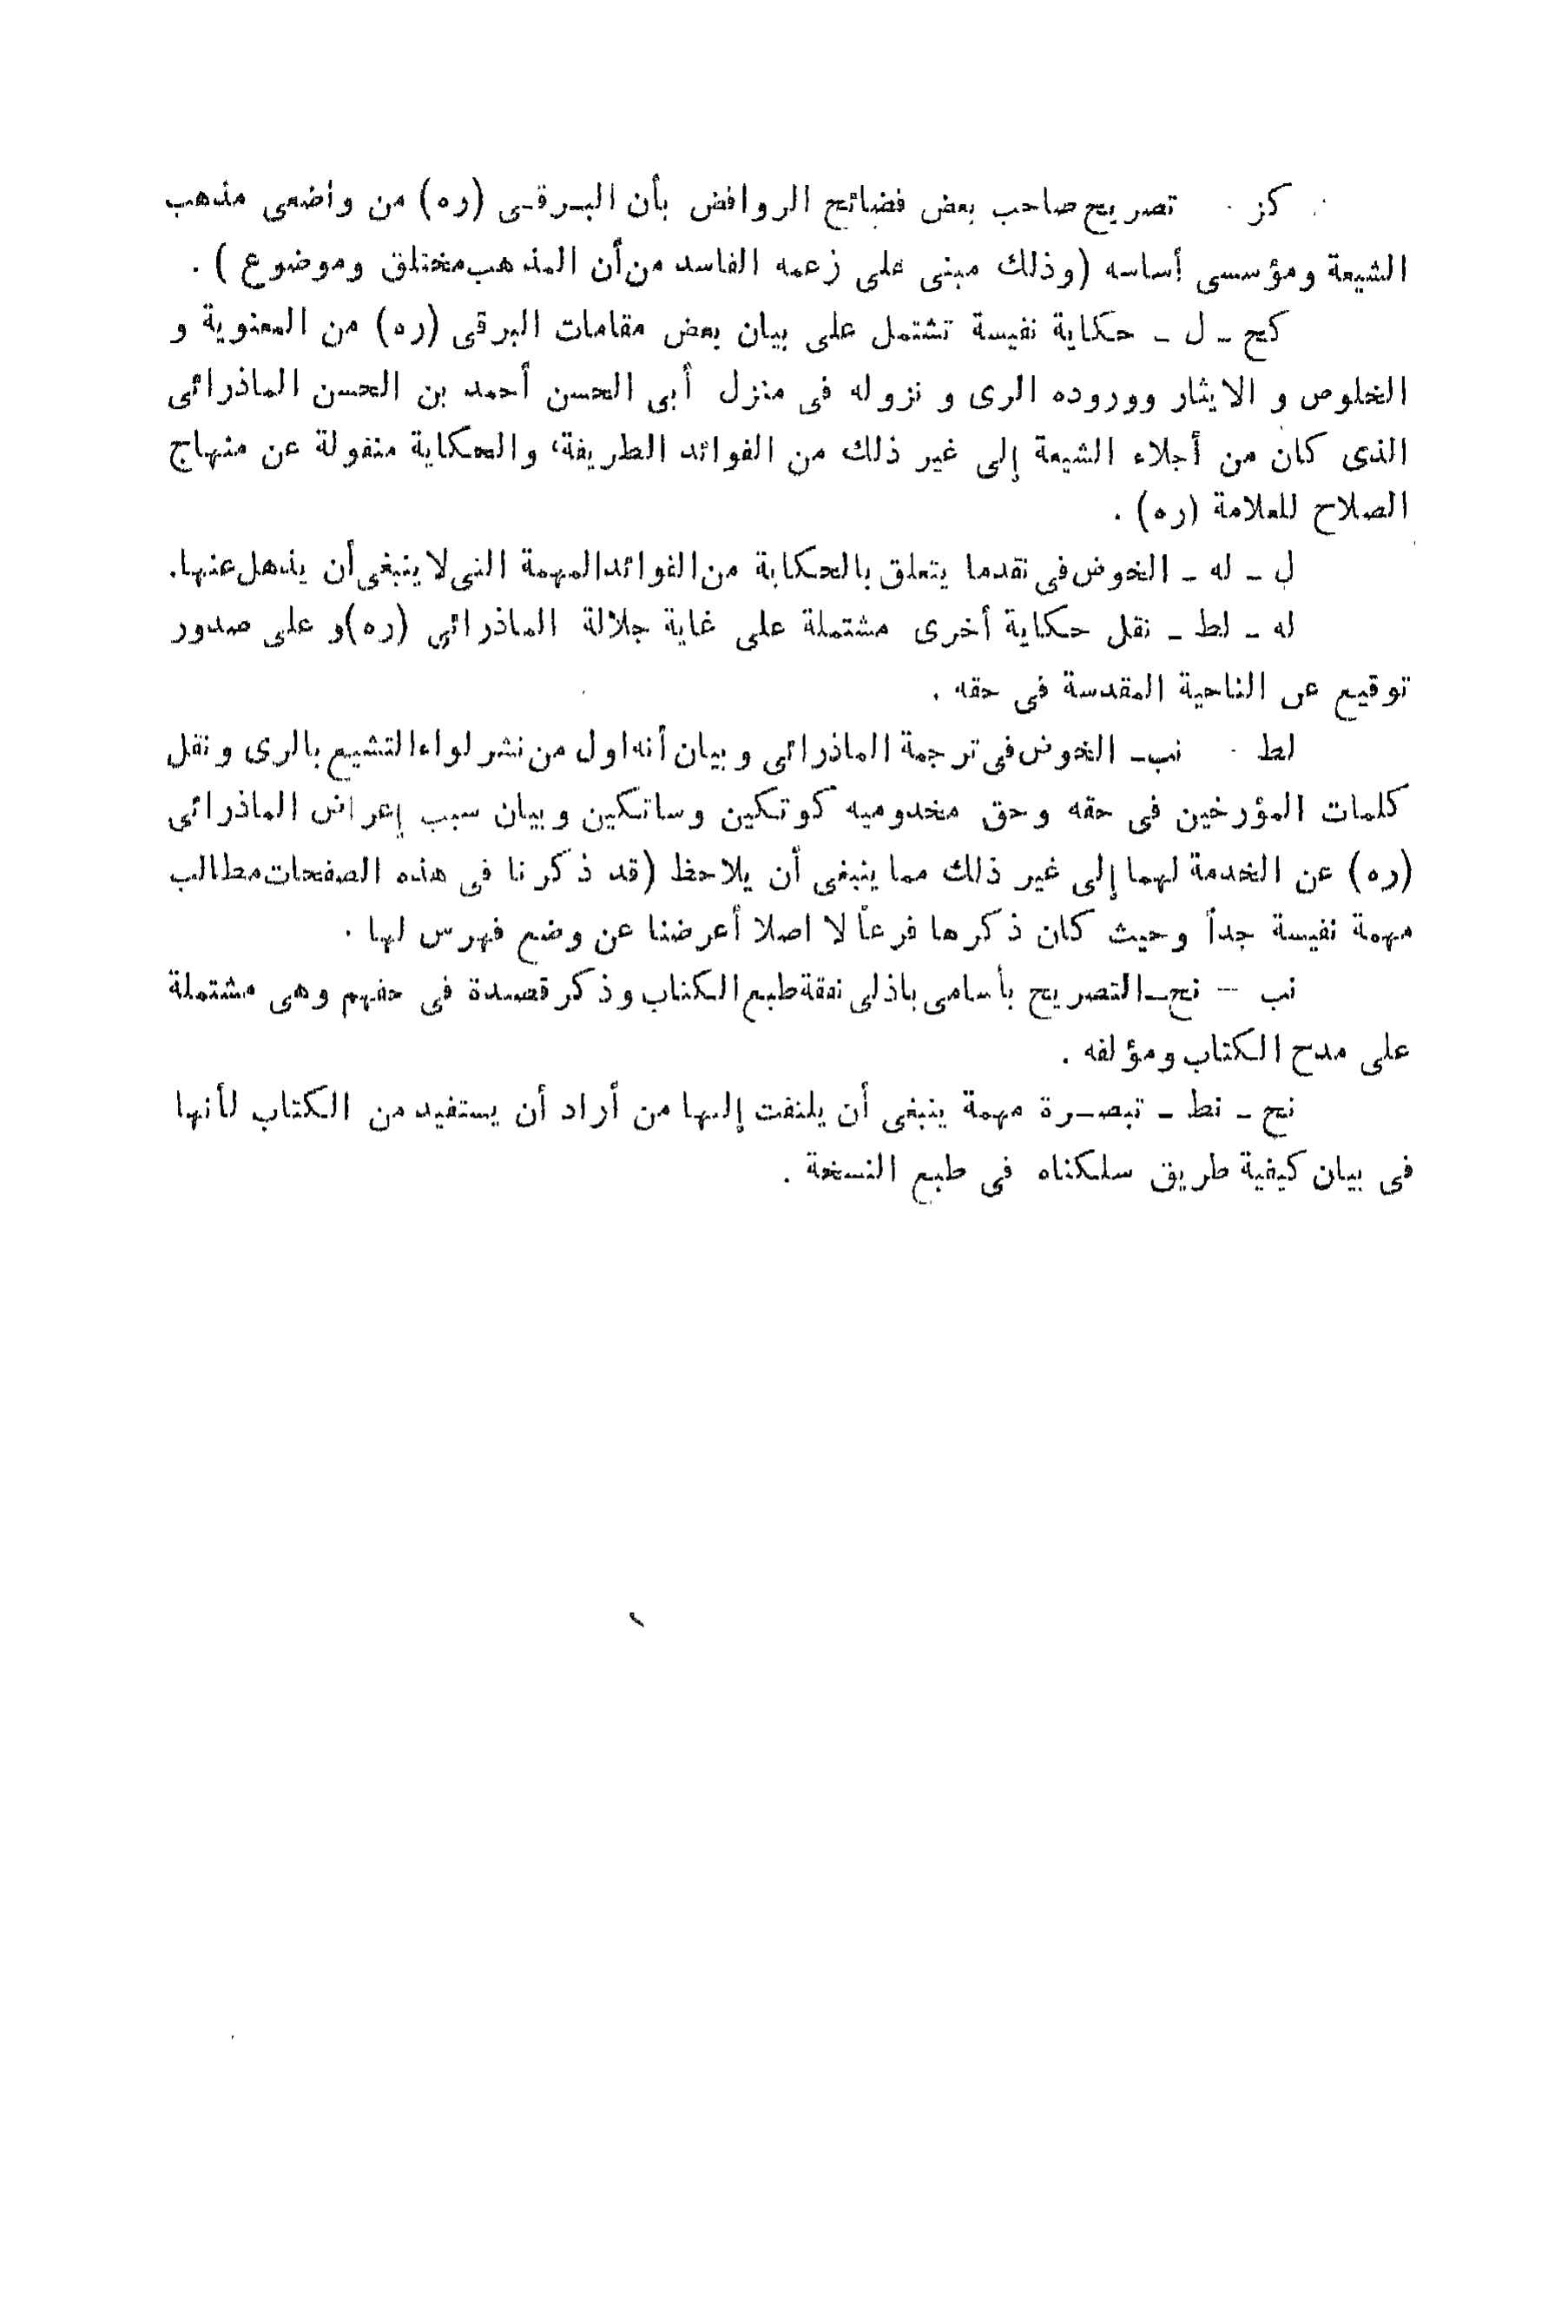 كز - تصريح صاحب بعض فضائح الروافض بأن البـرقـى (ره) من واضعى مذهب
الشيعة ومؤسسى أساسه (وذلك مبنى على زعمه الفاسد من أن المذهب مختلق وموضوع ) .
كح ـ ل ـ حكاية نفيسة تشتمل على بيان بعض مقامات البرقى (ره) من المعنوية و
الخلوص و الايثار ووروده الرى و نزوله فى منزل أبى الحسن أحمد بن الحسن الماذرائى
الذى كان من أجلاء الشيعة إلى غير ذلك من الفوائد الطريفة، والحكاية منقولة عن منهاج
الصلاح للعلامة (ره) .
ل ـ له ـ الخوض فى نقد ما يتعلق بالحكاية من الفوائد المهمة التى لا ينبغى أن يذهل عنها.
له ـ لط ـ نقل حكاية أخرى مشتملة على غاية جلالة الماذرائى (ره) و على صدور
توقيع عن الناحية المقدسة فى حقه .
لط - نب ـ الخوض فى ترجمة الماذرائى و بيان أنه اول من نشر لواء التشيع بالرى و نقل
كلمات المؤرخين فى حقه وحق مخدوميه كوتكين وساتكين وبيان سبب إعراض الماذرائى
(ره) عن الخدمة لهما إلى غير ذلك مما ينبغى أن يلاحظ (قد ذكرنا فى هذه الصفحات مطالب
مهمة نفيسة جداً وحيث كان ذكرها فرعاً لا اصلا أعرضنا عن وضع فهرس لها .
نب ـ نح ـ التصريح بأسامى باذلى نفقة طبع الكتاب وذكر قصيدة فى حقهم وهى مشتملة
على مدح الكتاب ومؤلفه .
نح ـ نط ـ تبصـرة مهمة ينبغى أن يلتفت إليها من أراد أن يستفيد من الكتاب لأنها
فى بيان كيفية طريق سلكناه فى طبع النسخة .